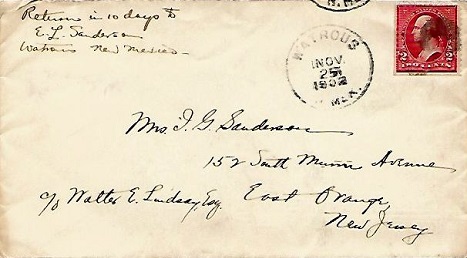 Return in 10 days to
E. L. Sanderson
Watrous New Mexico
WATROUS
NOV.
25
N. MEX.
2 2
TWO CENTS
Mrs. J. G. Sanderson
152 South Munn Avenue
c/o Walter E. Lindsay, Esq. East Orange,
New Jersey